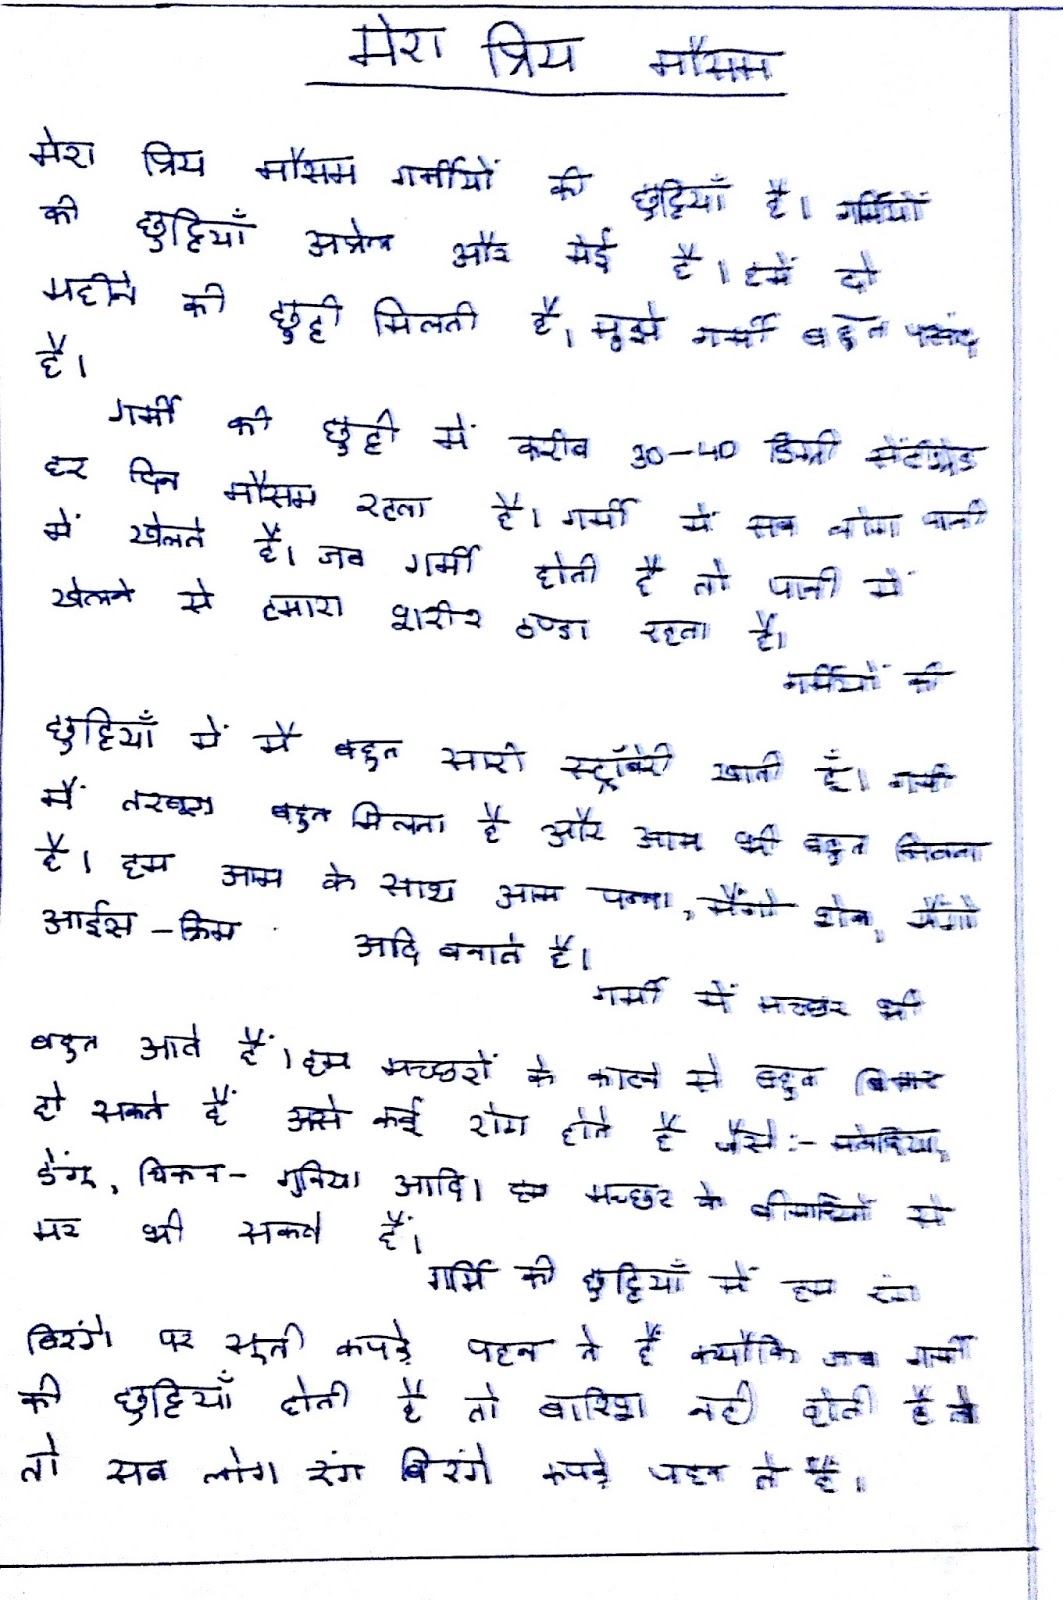 मेरा प्रिय मौसम
मेरा प्रिय मौसम गर्मीयों की छुट्टियाँ है। गर्मियों
की छुट्टियाँ अप्रेल और मेई है। हमें दो
महीने की छुट्टी मिलती है, मुझे गर्मी बहुत पसंद
है।
गर्मी की छुट्टी में करीब 30-40 डिग्री सेंटीग्रेड
हर दिन मौसम रहता है। गर्मी में सब लोग पानी
में खेलते है। जब गर्मी होती है तो पानी में
खेलने से हमारा शरीर ठण्डा रहता है।
गर्मियों की
छुट्टियाँ में मैं बहुत सारी स्ट्रॉबेरी खाती हूँ। गर्मी
में तरबूज बहुत मिलता है और आम भी बहुत मिलता
है। हम आम के साथ आम पन्ना, मैंगो शेक, मैंगो
आईस-क्रिम आदि बनाते है।
गर्मी में मच्छर भी
बहुत आते हैं। हम मच्छरों के काटने से बहुत बिमार
हो सकते हैं असे कई रोग होते है जैसे:- मलेरिया,
डेंगू, चिकन-गुनिया आदि। हम मच्छर के बीमारियों से
मर भी सकते हैं।
गर्मि की छुट्टियाँ में हम रंग
बिरंगे पर सूती कपड़े पहन ते हैं क्योंकि जब गर्मी
की छुट्टियाँ होती है तो बारिश नही होती है
तो सब लोग रंग बिरंगे कपड़े पहन ते है।